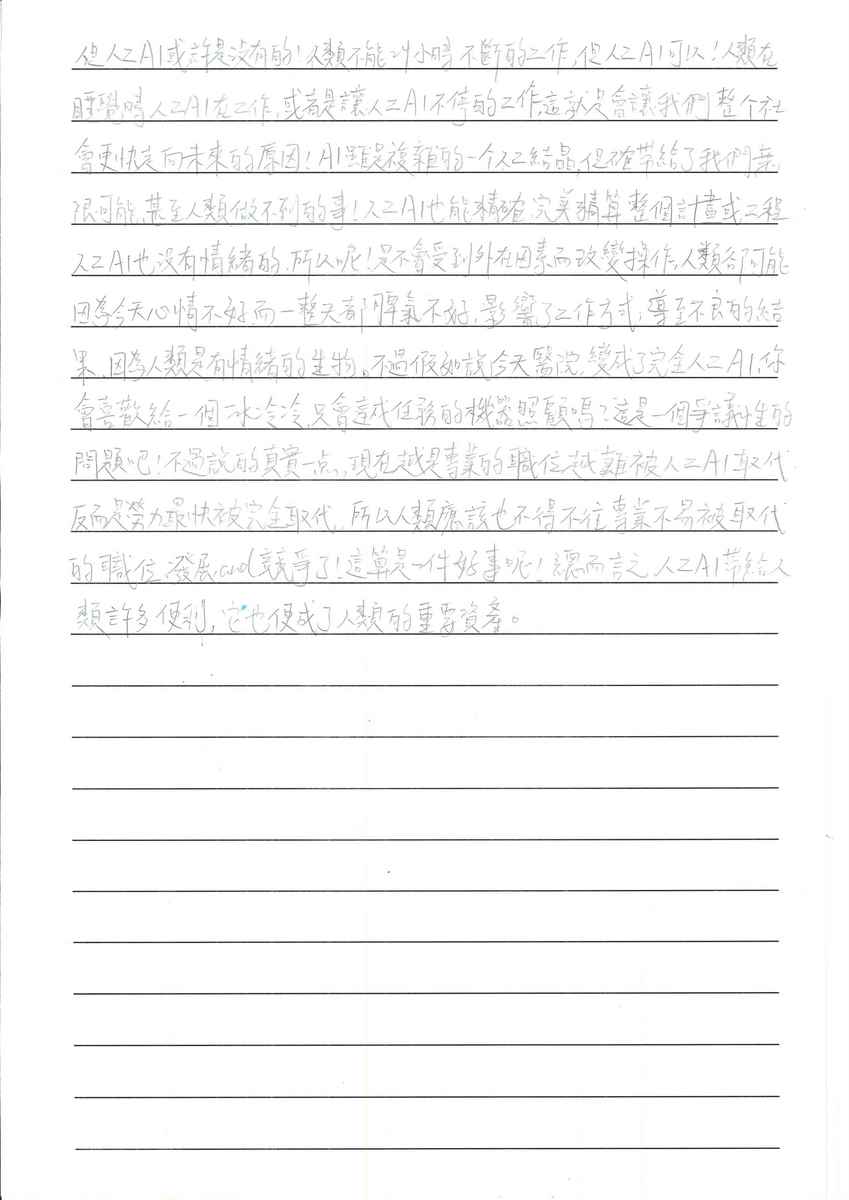 但人工AI或許是沒有的!人類不能24小時不斷的工作,但人工AI可以!人類在
睡覺時人工AI在工作,或者是讓人工AI不停的工作,這就是會讓我們整个社
會更快走向未來的原因!AI雖是複雜的一个人工結晶,但確帶給了我們無
限可能,甚至人類做不到的事!人工AI也能精確完美精算整個計畫或工程
人工AI也沒有情緒的,所以呢!是不會受到外在因素而改變操作,人類卻可能
因為今天心情不好而一整天都脾氣不好,影響了工作方式,導至不良的結
果,因為人類是有情緒的生物。不過假如說今天醫院變成了完全人工AI,你
會喜歡給一個冰冷冷,只會達成任務的機器照顧嗎?這是一個爭議性的
問題吧!不過說的真實一点,現在越是專業的職位越難被人工AI取代
反而是勞力最快被完全取代,所以人類應該也不得不往專業不易被取代
的職位發展and競爭了!這算是一件好事呢!總而言之,人工AI帶給人
類許多便利,它也便成了人類的重要資產。